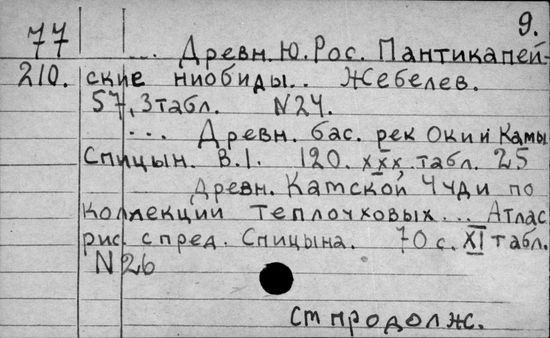 9.
77 ... Древн. Ю. Рос. Пантикапей-
210. ские ниобиды.. Жебелев.
57, 3 табл. N24.
... Древн. бас. рек Оки и Камы
Спицын. В.1. 120. XXX табл. 25
Древн. Камской Чуди по
коллекции Теплоуховых... Атлас
рис с пред. Спицына. 70 с. XI табл.
N26
См продолж.